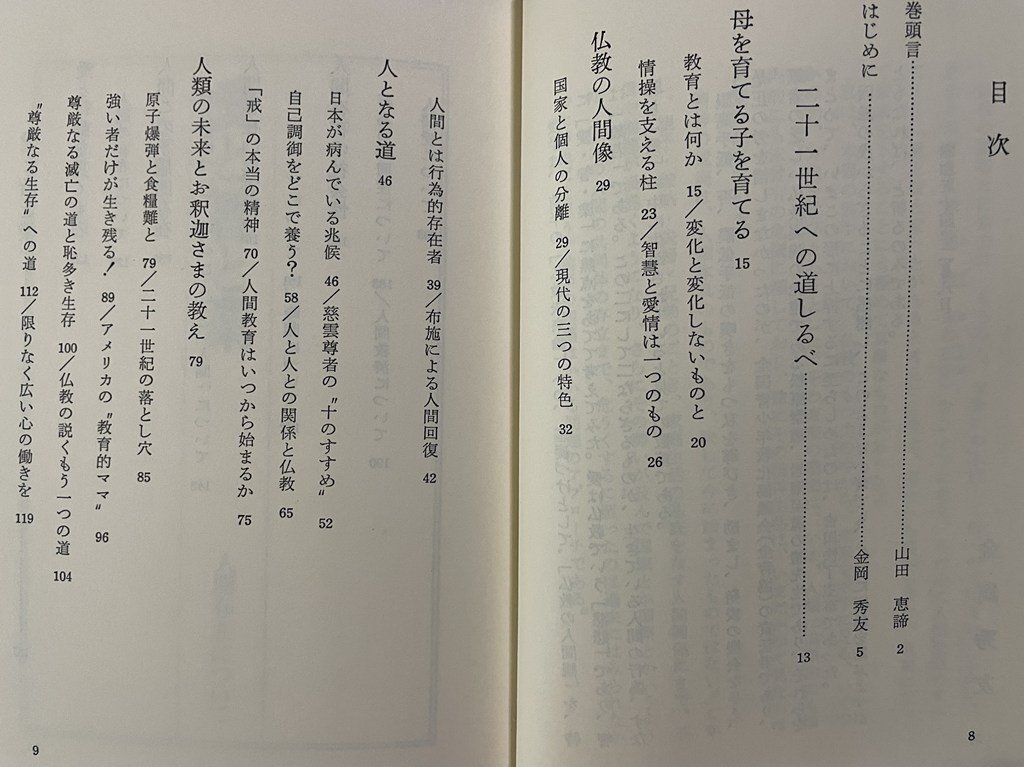 目次
巻頭言……山田　恵諦 2
はじめに……金岡　秀友 5
二十一世紀への道しるべ……13
母を育てる子を育てる 15
教育とは何か 15／変化と変化しないものと 20
情操を支える柱 23／智慧と愛情は一つのもの 26
仏教の人間像 29
国家と個人の分離 29／現代の三つの特色 32
8
人間とは行為的存在者 39／布施による人間回復 42
人となる道 46
日本が病んでいる兆候 46／慈雲尊者の〝十のすすめ〟 52
自己調御をどこで養う？ 58／人と人との関係と仏教 65
「戒」の本当の精神 70／人間教育はいつから始まるか 75
人類の未来とお釈迦さまの教え 79
原子爆弾と食糧難と 79／二十一世紀の落とし穴 85
強い者だけが生き残る！ 89／アメリカの〝教育的ママ〟 96
尊厳なる滅亡の道と恥多き生存 100／仏教の説くもう一つの道 104
〝尊厳なる生存〟への道 112／限りなく広い心の働きを 119
9